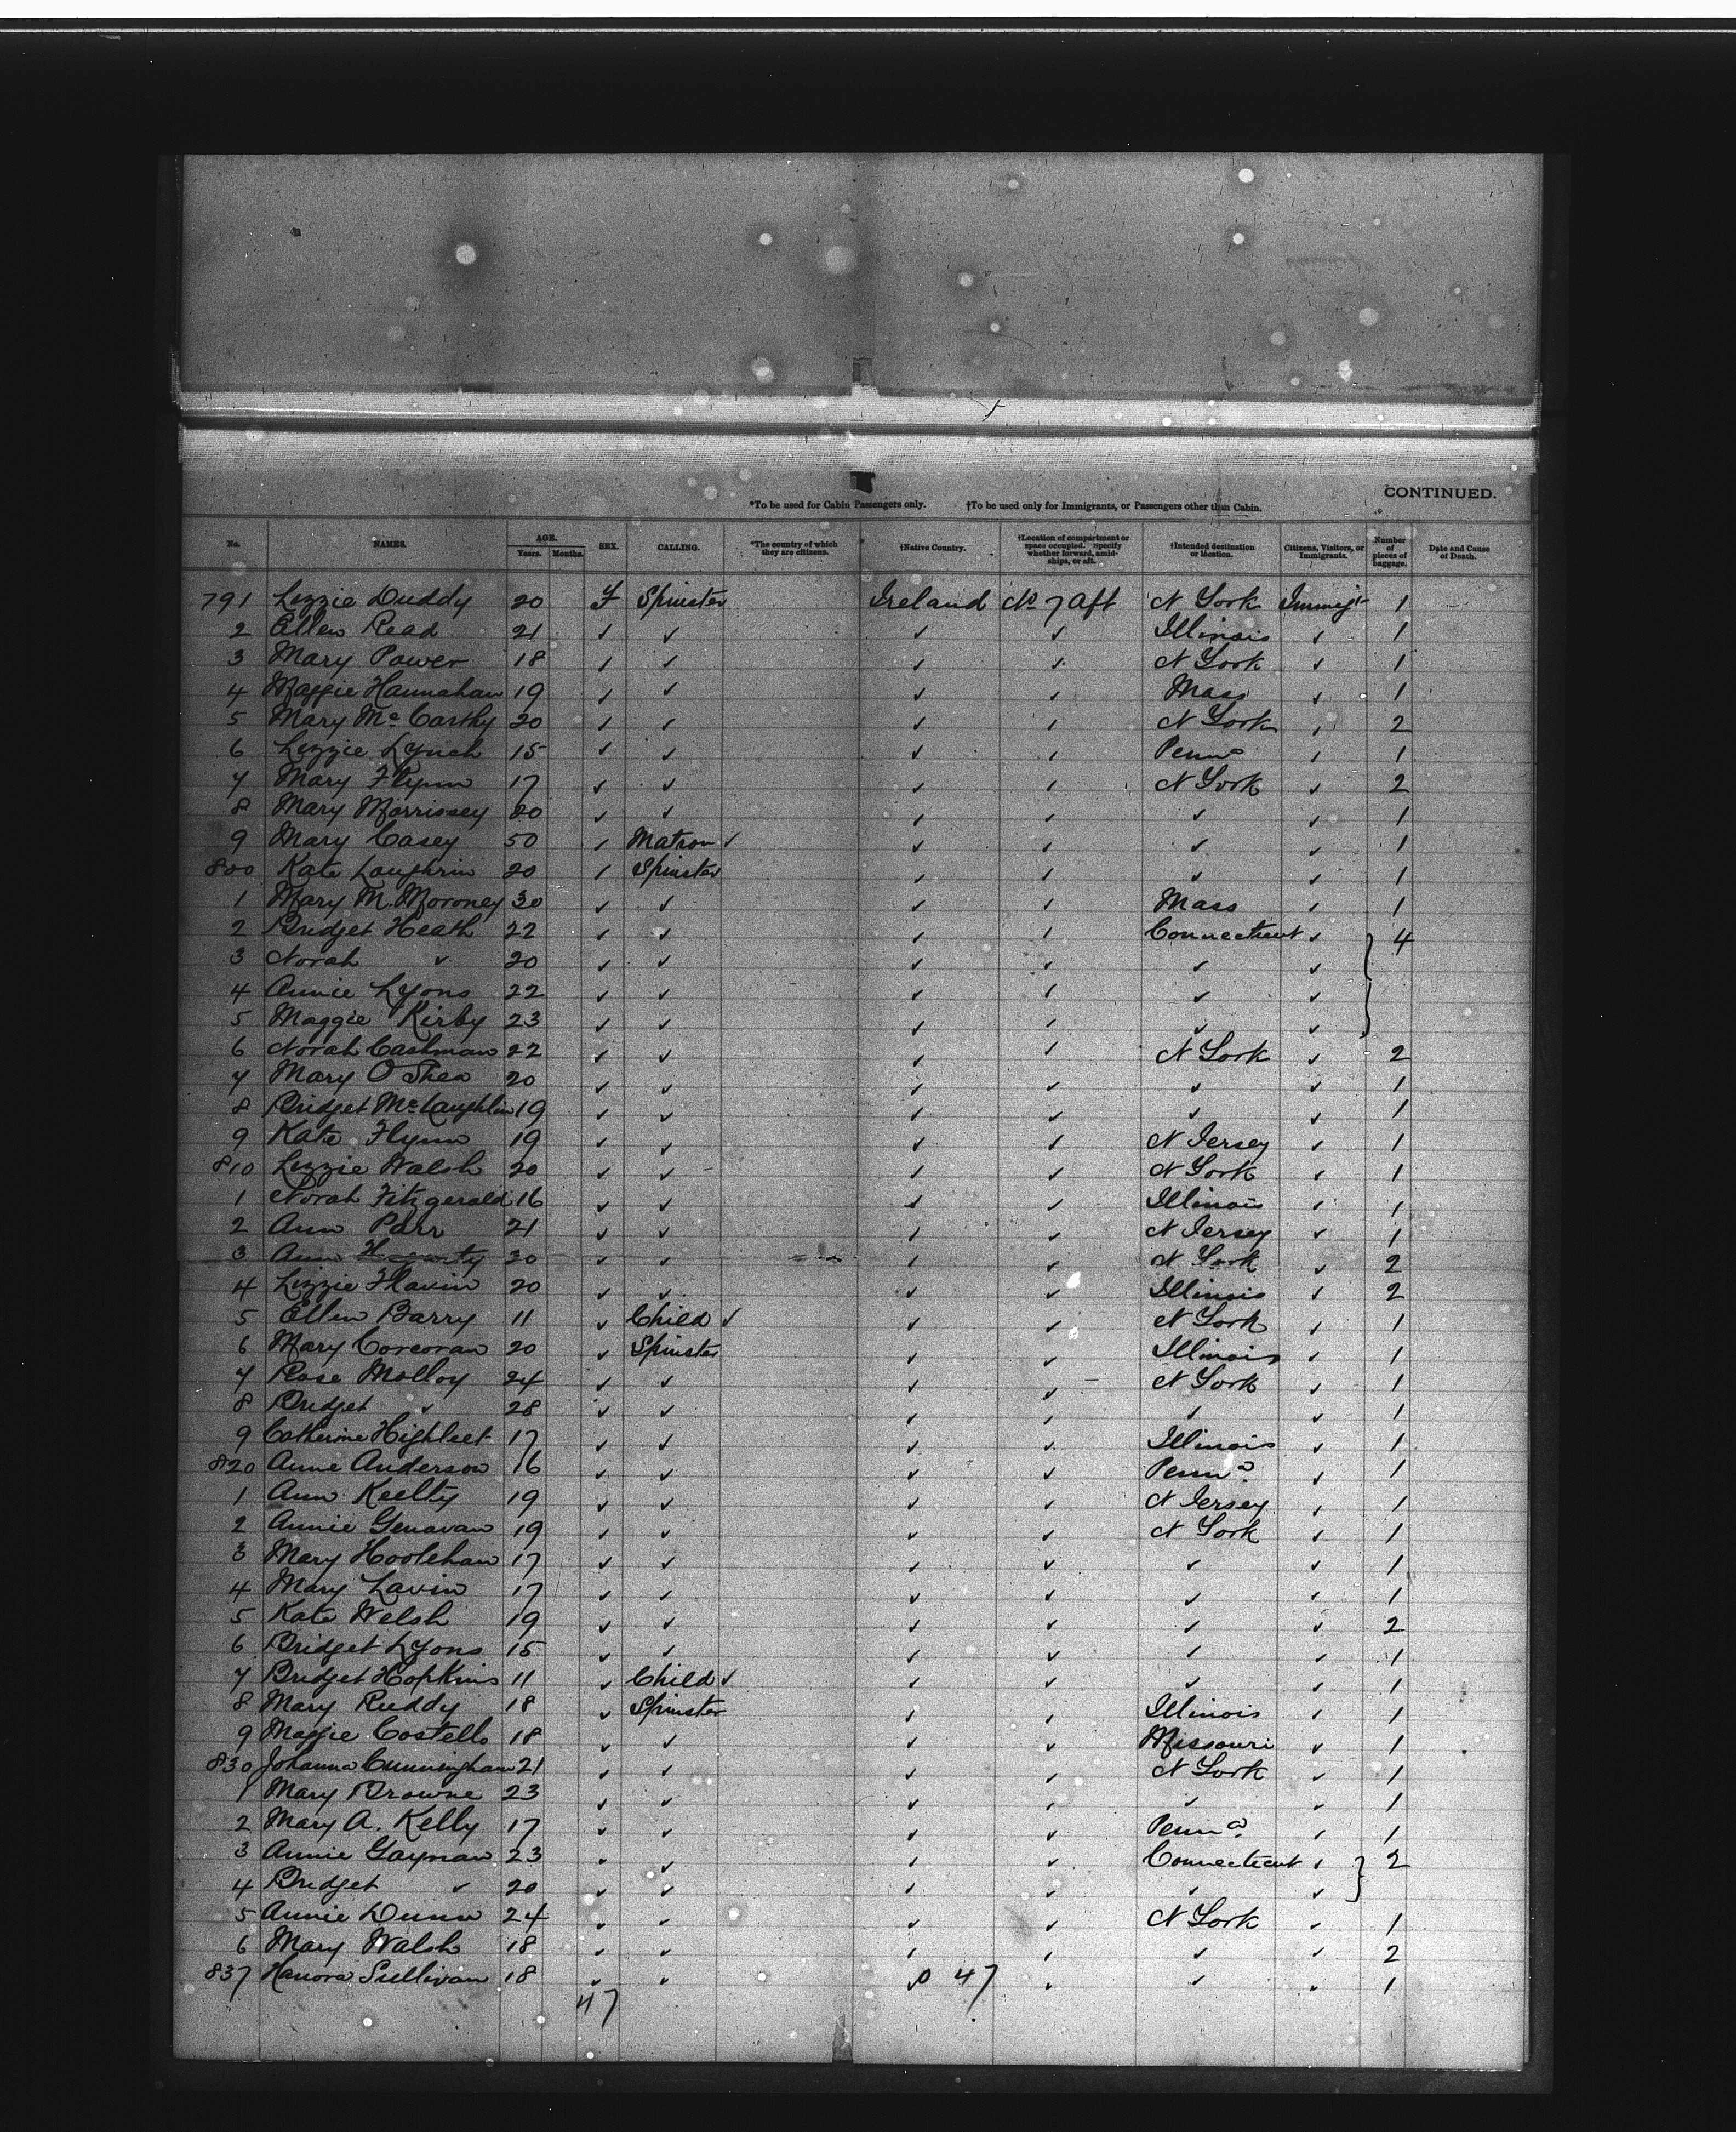 CONTINUED.
*To be used for Cabin Passengers only. †To be used only for Immigrants, or Passengers other than Cabin.
No. NAMES. AGE. Years. Months. SEX. CALLING. *The country of which they are citizens. †Native Country. †Location of compartment or space occupied. Specify whether forward, amidships, or aft. †Intended destination or location. Citizens, Visitors, or Immigrants. Number of pieces of baggage. Date and Cause of Death.
791 Lizzie Duddy 20 F Spinster Ireland No 7 Aft N York Immigt 1
2 Ellen Read 21 ✓ ✓ ✓ ✓ Illinois ✓ 1
3 Mary Power 18 ✓ ✓ ✓ ✓ N York ✓ 1
4 Maggie Hannahan 19 ✓ ✓ ✓ ✓ Mass ✓ 1
5 Mary Mc Carthy 20 ✓ ✓ ✓ ✓ N York ✓ 2
6 Lizzie Lynch 15 ✓ ✓ ✓ ✓ Penna ✓ 1
7 Mary Flynn 17 ✓ ✓ ✓ ✓ N York ✓ 2
8 Mary Morrissey 20 ✓ ✓ ✓ ✓ ✓ ✓ 1
9 Mary Casey 50 ✓ Matron ✓ ✓ ✓ ✓ ✓ 1
800 Kate Loughrin 20 ✓ Spinster ✓ ✓ ✓ ✓ 1
1 Mary M. Moroney 30 ✓ ✓ ✓ ✓ Mass ✓ 1
2 Bridget Heath 22 ✓ ✓ ✓ ✓ Connecticut ✓ } 4
3 Norah ✓ 20 ✓ ✓ ✓ ✓ ✓ ✓
4 Annie Lyons 22 ✓ ✓ ✓ ✓ ✓ ✓ }
5 Maggie Kirby 23 ✓ ✓ ✓ ✓ ✓ ✓
6 Norah Cashman 22 ✓ ✓ ✓ ✓ N York ✓ 2
7 Mary O'Shea 20 ✓ ✓ ✓ ✓ ✓ ✓ 1
8 Bridget Mc Laughlin 19 ✓ ✓ ✓ ✓ ✓ ✓ 1
9 Kate Flynn 19 ✓ ✓ ✓ ✓ N Jersey ✓ 1
810 Lizzie Walsh 20 ✓ ✓ ✓ ✓ N York ✓ 1
1 Norah Fitzgerald 16 ✓ ✓ ✓ ✓ Illinois ✓ 1
2 Ann Parr 21 ✓ ✓ ✓ ✓ N Jersey ✓ 1
3 Ann 20 ✓ ✓ ✓ ✓ N York ✓ 2
4 Lizzie Flavin 20 ✓ ✓ ✓ ✓ Illinois ✓ 2
5 Ellen Barry 11 ✓ Child ✓ ✓ ✓ N York ✓ 1
6 Mary Corcoran 20 ✓ Spinster ✓ ✓ Illinois ✓ 1
7 Rose Molloy 24 ✓ ✓ ✓ ✓ N York ✓ 1
8 Bridget ✓ 28 ✓ ✓ ✓ ✓ ✓ ✓ 1
9 Catherine Highleet 17 ✓ ✓ ✓ ✓ Illinois ✓ 1
820 Anne Anderson 16 ✓ ✓ ✓ ✓ Penna ✓ 1
1 Ann Keelty 19 ✓ ✓ ✓ ✓ N Jersey ✓ 1
2 Annie Genavan 19 ✓ ✓ ✓ ✓ N York ✓ 1
3 Mary Hoolehan 17 ✓ ✓ ✓ ✓ ✓ ✓ 1
4 Mary Lavin 17 ✓ ✓ ✓ ✓ ✓ ✓ 1
5 Kate Welsh 19 ✓ ✓ ✓ ✓ ✓ ✓ 2
6 Bridget Lyons 15 ✓ ✓ ✓ ✓ ✓ ✓ 1
7 Bridget Hopkins 11 ✓ Child ✓ ✓ ✓ ✓ ✓ 1
8 Mary Ruddy 18 ✓ Spinster ✓ ✓ Illinois ✓ 1
9 Maggie Costello 18 ✓ ✓ ✓ ✓ Missouri ✓ 1
830 Johanna Cunningham 21 ✓ ✓ ✓ ✓ N York ✓ 1
1 Mary Browne 23 ✓ ✓ ✓ ✓ ✓ ✓ 1
2 Mary A. Kelly 17 ✓ ✓ ✓ ✓ Penna ✓ 1
3 Annie Gaynan 23 ✓ ✓ ✓ ✓ Connecticut ✓ } 2
4 Bridget ✓ 20 ✓ ✓ ✓ ✓ ✓ ✓
5 Annie Dunn 24 ✓ ✓ ✓ ✓ N York ✓ 1
6 Mary Walsh 18 ✓ ✓ ✓ ✓ ✓ ✓ 2
837 Hanora Sullivan 18 ✓ ✓ ✓ 0 47 ✓ ✓ ✓ 1
47